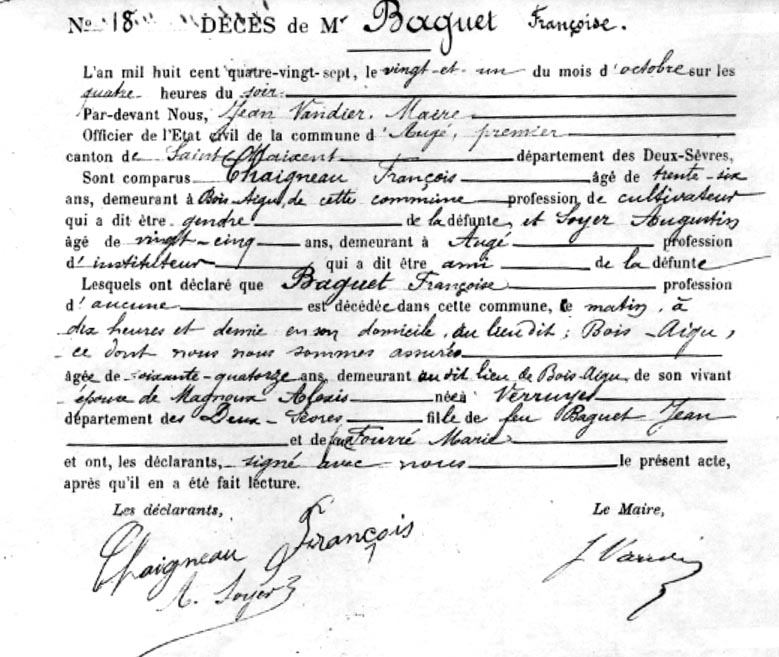 No 18 DÉCÈS de Mr Baguet Françoise.
L'an mil huit cent quatre-vingt-sept, le vingt-et-un du mois d'octobre sur les
quatre heures du soir
Par-devant Nous, Jean Vandier, Maire
Officier de l'Etat civil de la commune d'Augé, premier
canton de Saint-Maixent département des Deux-Sèvres,
Sont comparus Chaigneau François âgé de trente-six
ans, demeurant à Bois-Aigu, de cette commune profession de cultivateur
qui a dit être gendre de la défunte, et Soyer Augustin
âgé de vingt-cinq ans, demeurant à Augé profession
d'instituteur qui a dit être ami de la défunte
Lesquels ont déclaré que Baguet Françoise profession
d'aucune est décédée dans cette commune, ce matin, à
dix heures et demie en son domicile, au lieu dit; Bois-Aigu,
ce dont nous nous sommes assurés
âgée de soixante-quatorze ans, demeurant au dit lieu de Bois-Aigu, de son vivant
épouse de Magnoux Alexis née à Verruyes
département des Deux-Sèvres fille de feu Baguet Jean
et de feue Fourré Marie
et ont, les déclarants, signé avec nous le présent acte,
après qu'il en a été fait lecture.
Les déclarants, Le Maire,
Chaigneau François J Vandier
A. Soyer